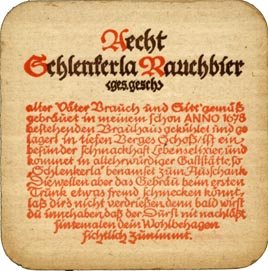 Aecht
Schlenkerla Rauchbier
<ges. gesch>
alter Väter Brauch und Sitt' gemäß
gebräuet in meinem schon ANNO 1678
bestehenden Bräuhaus gekühlet und ge
lagert in tiefen Berges Schoß/ist ein
besünder schmackhaft Lebenselixier, und
kommet in altehrwürdiger Gaststätte, so
"Schlenkerla" benamset zum Ausschank
Dieweillen aber das Gebräu beim ersten
Trunk etwas fremd schmecken könnt,
laß dirs nicht verdrießen, denn bald wirst
du innehaben, daß der Durst nit nachläßt
sintemalen dein Wohlbehagen
sichtlich zunimmt.